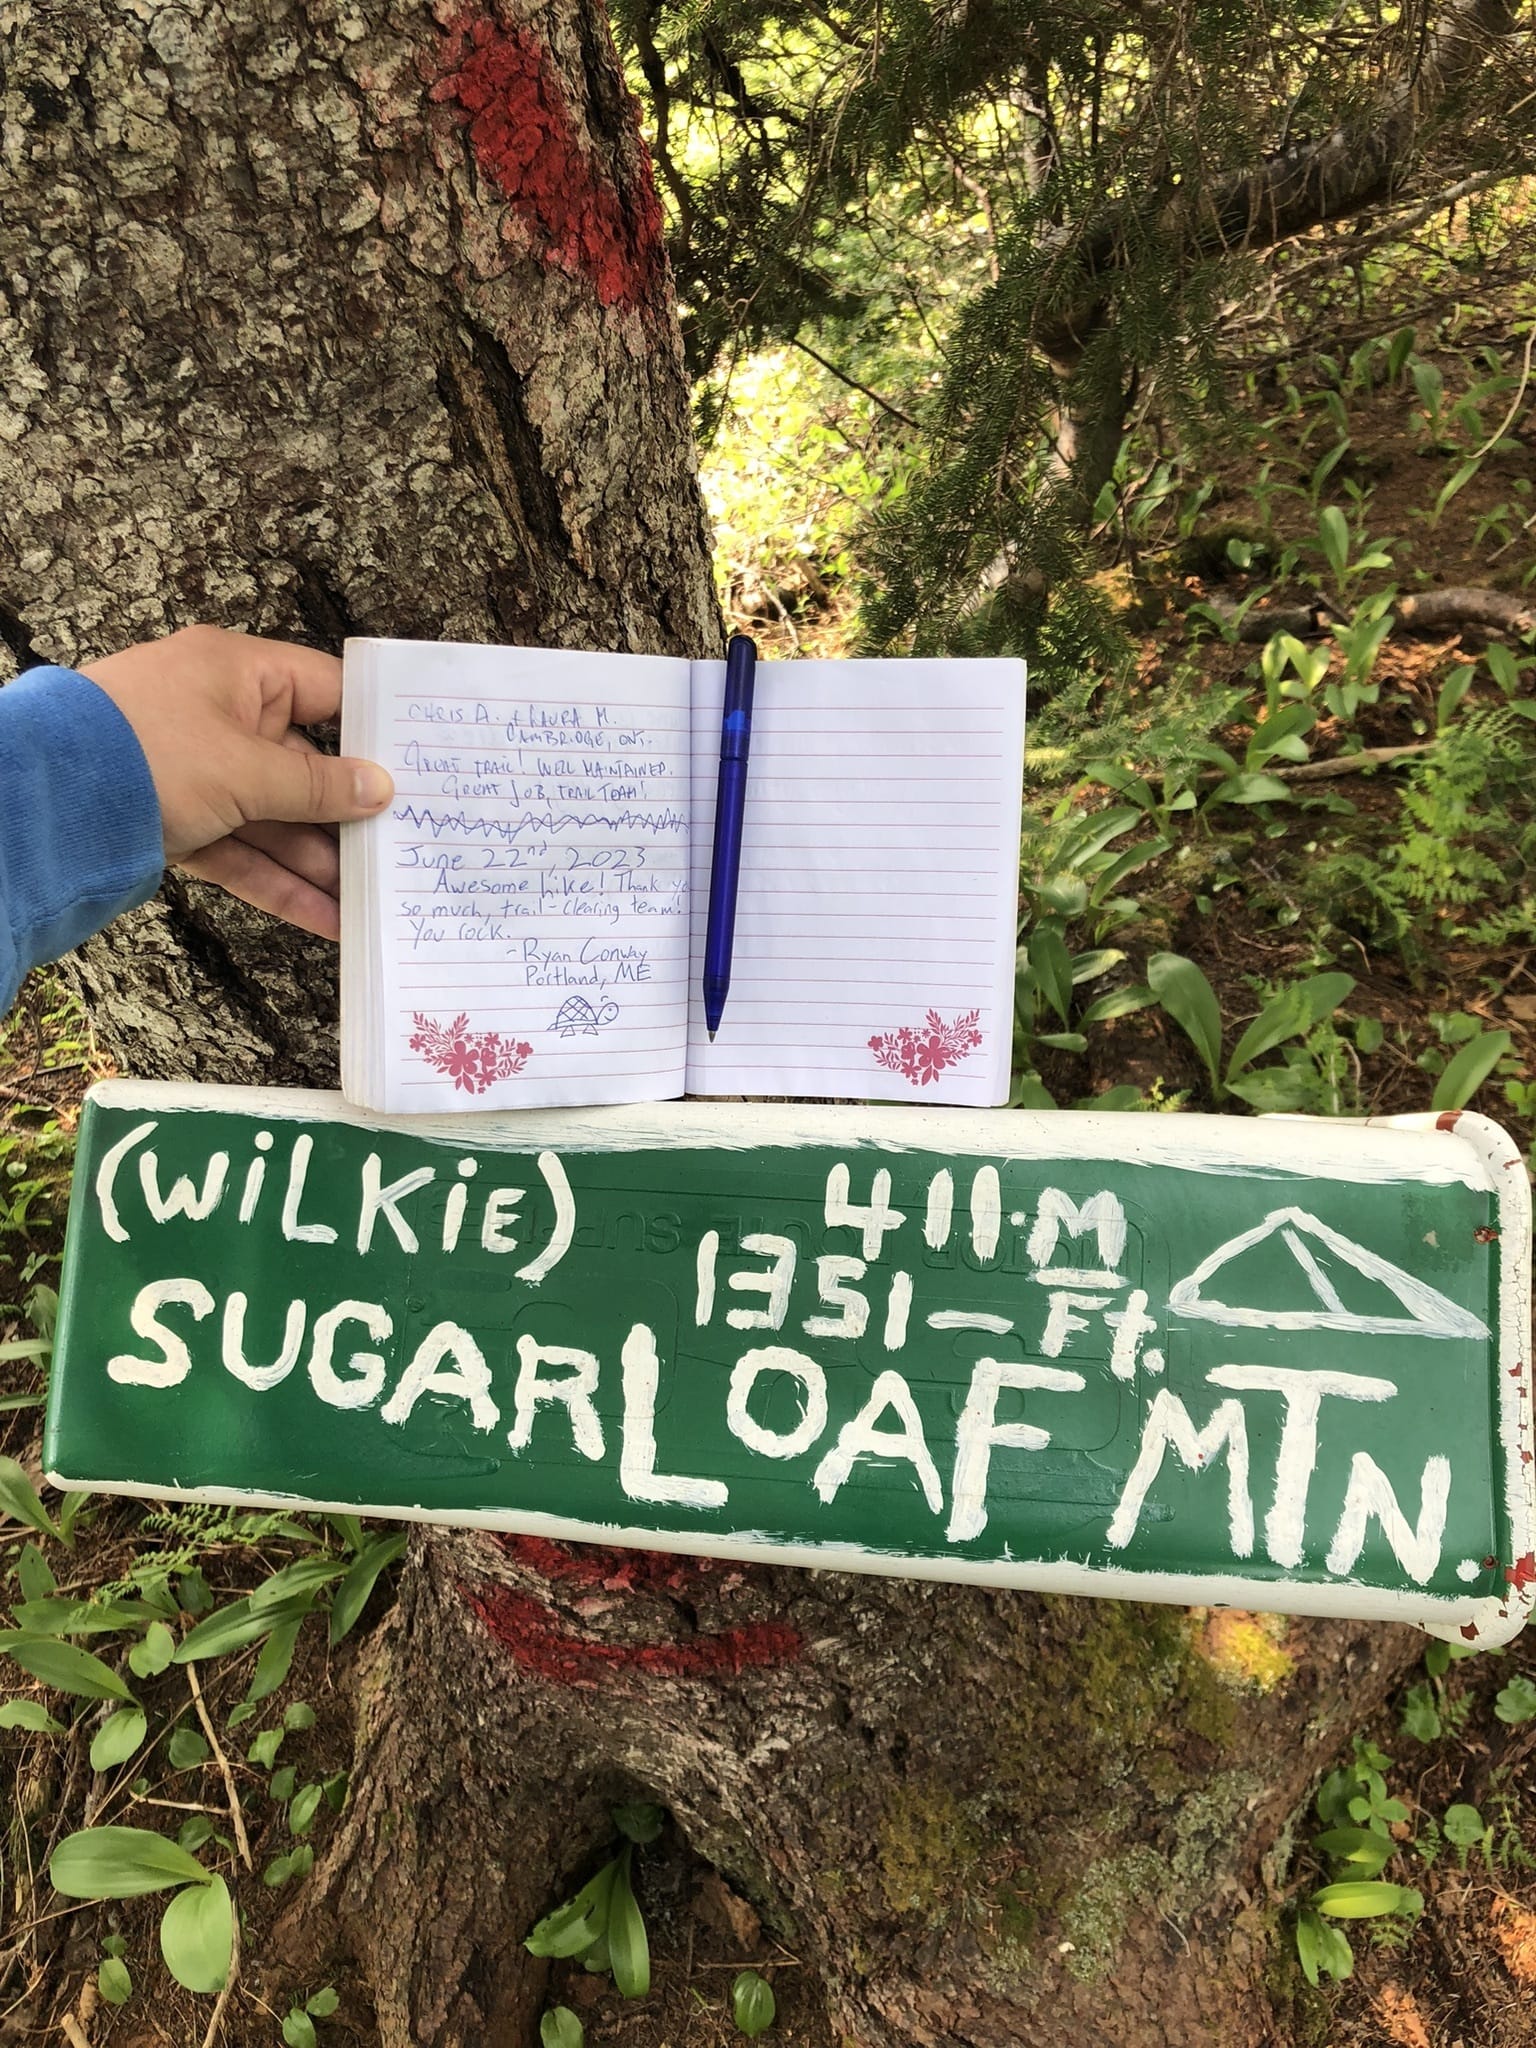 CHRIS A. + LAURA M.
CAMBRIDGE, ONT.
GREAT TRAIL! WELL MAINTAINED.
GREAT JOB, TRAIL TEAM!
June 22nd, 2023
Awesome hike! Thank yo
so much, trail-clearing team!
You rock.
-Ryan Conway
Portland, ME
(WiLKiE)
411.M
1351-Ft.
SUGARLOAF MTN.